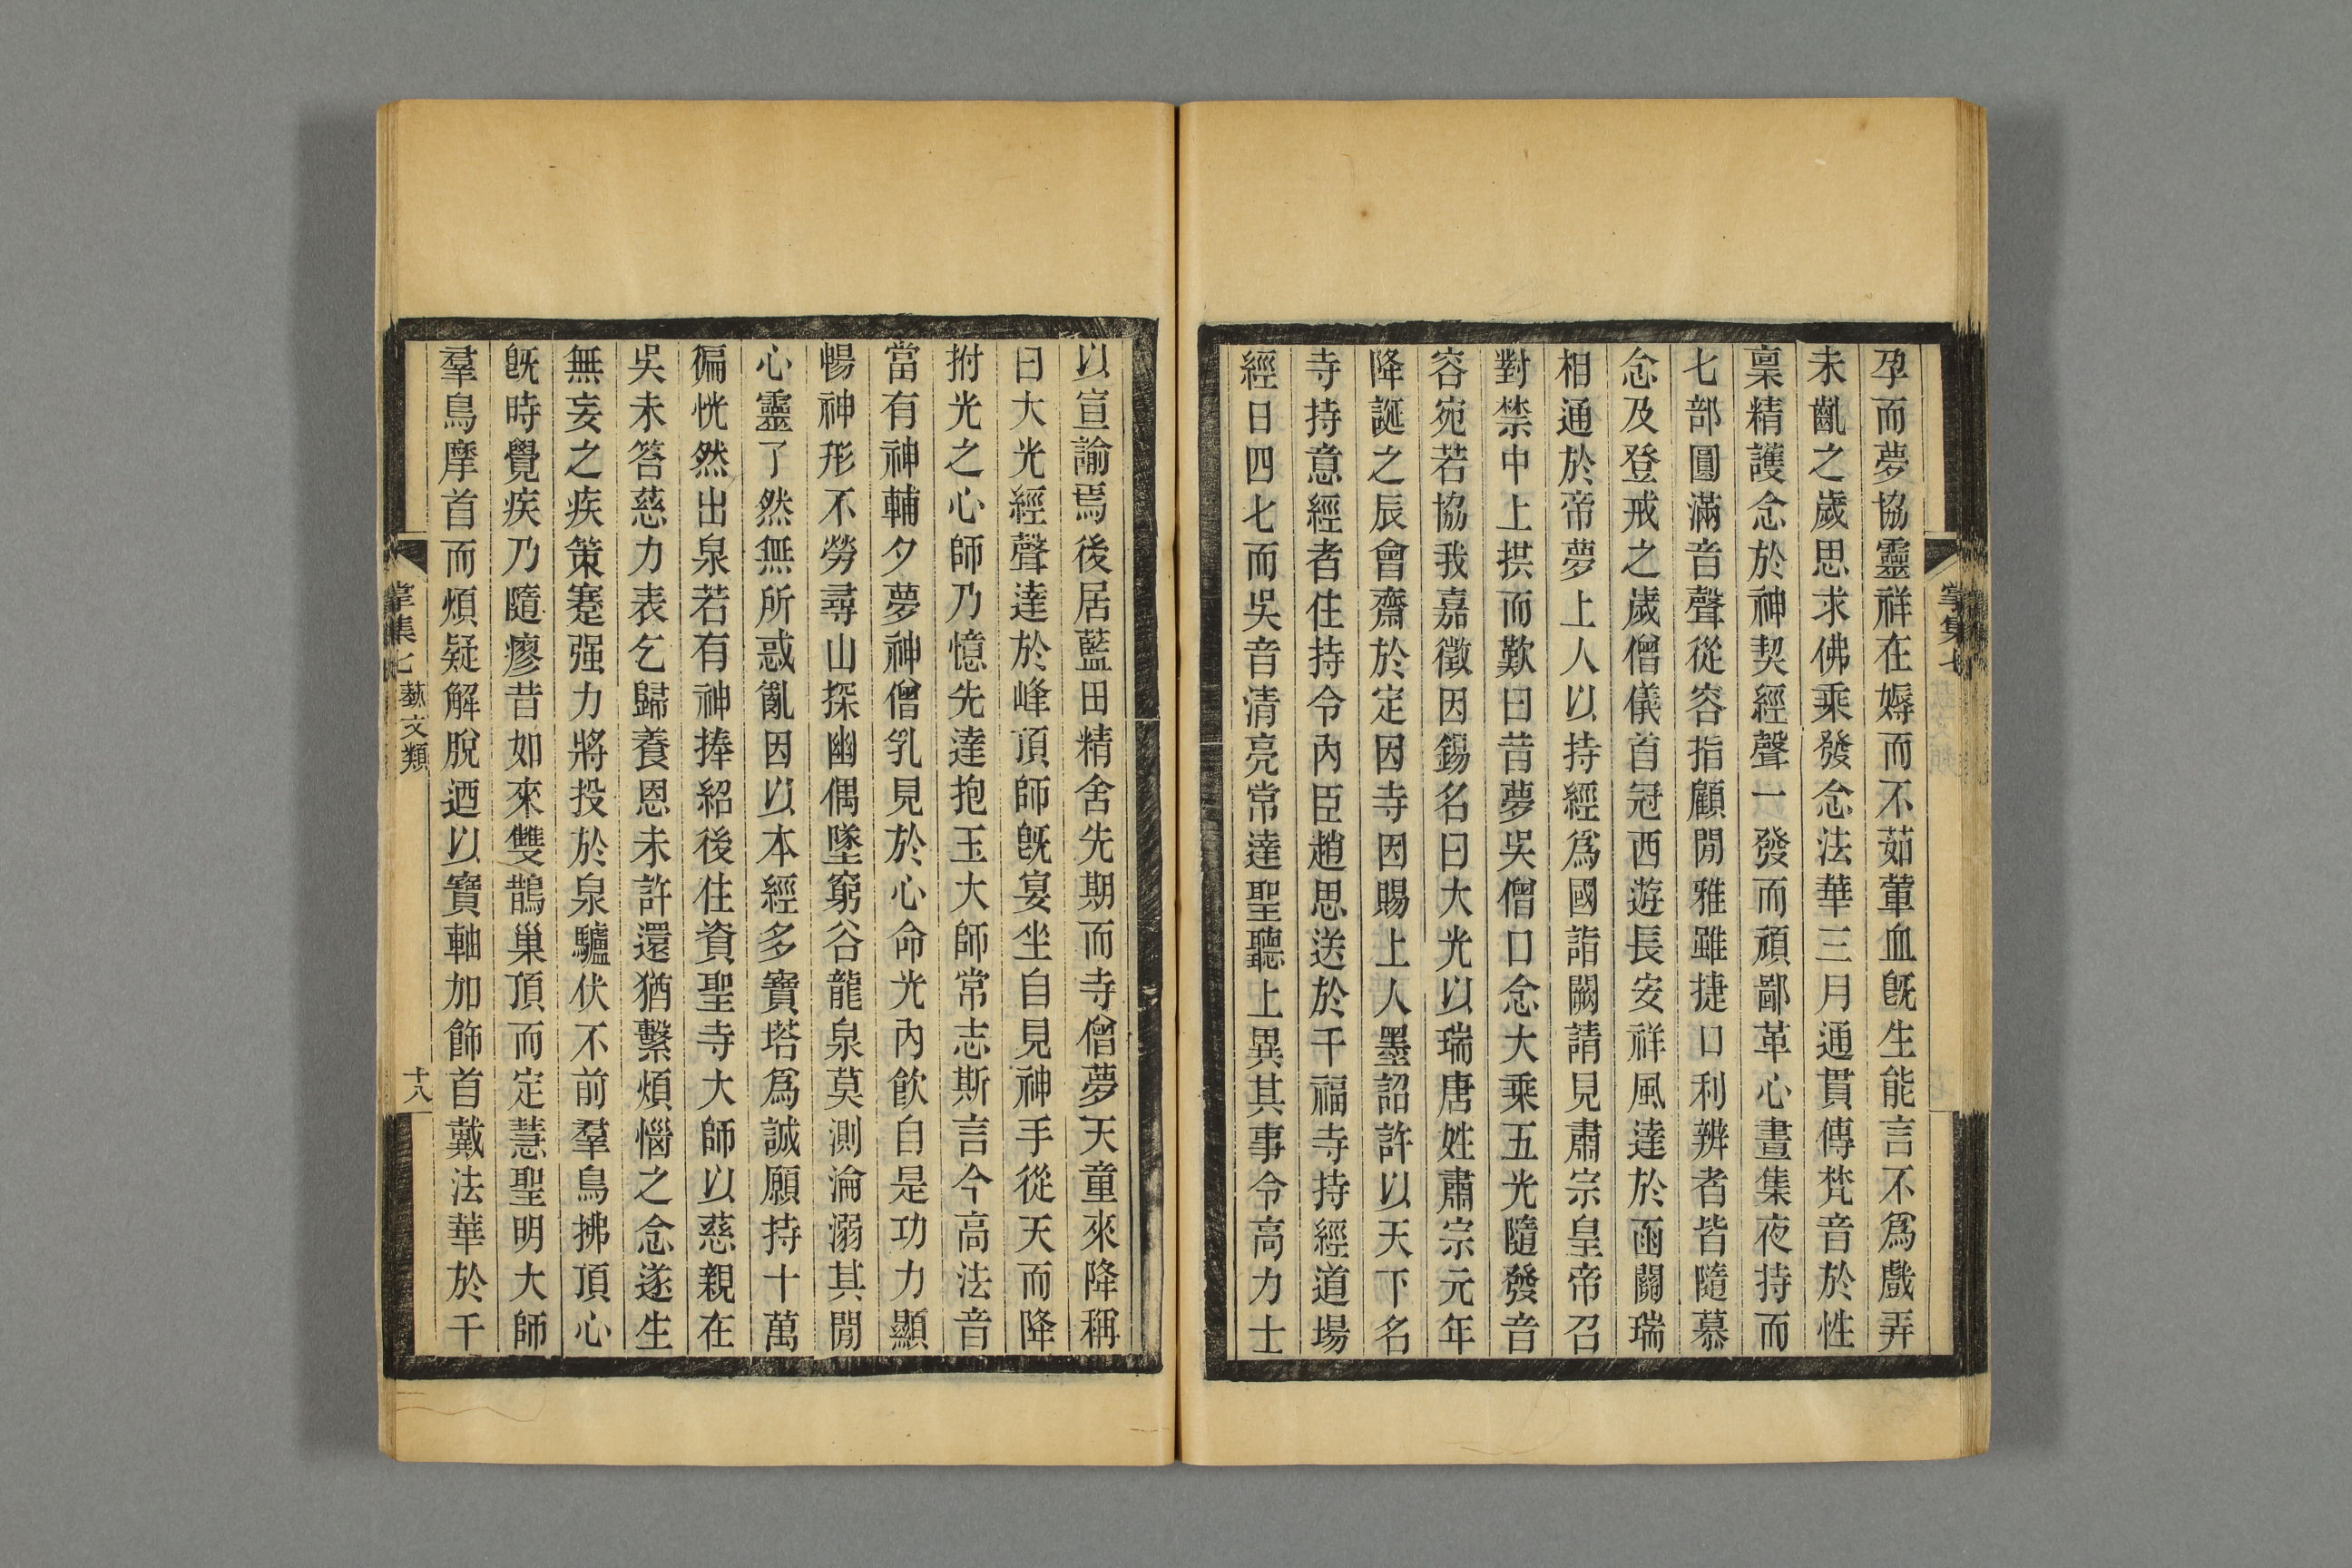 孕而夢協靈祥在媷而不茹葷血旣生能言不爲戲弄
未齓之歲思求佛乘發念法華三月通貫傳梵音於性
稟精護念於神契經聲一發而頑鄙革心晝集夜持而
七部圓滿音聲從容指顧閒雅雖捷口利辨者皆隨慕
念及登戒之歲僧儀首冠西遊長安祥風達於函關瑞
相通於帝夢上人以持經爲國詣闕請見肅宗皇帝召
對禁中上拱而歎曰昔夢吳僧口念大乘五光隨發音
容宛若協我嘉徵因錫名曰大光以瑞唐姓肅宗元年
降誕之辰會齋於定因寺因賜上人墨詔許以天下名
寺持意經者住持令內臣趙思送於千福寺持經道場
經日四七而吳音清亮常達聖聽上異其事令高力士
以宣諭焉後居藍田精舍先期而寺僧夢天童來降稱
曰大光經聲達於峰頂師旣宴坐自見神手從天而降
拊光之心師乃憶先達抱玉大師常志斯言今高法音
當有神輔夕夢神僧乳見於心命光內飮自是功力顯
暢神形不勞尋山探幽偶墜窮谷龍泉莫測淪溺其閒
心靈了然無所惑亂因以本經多寶塔爲誠願持十萬
徧恍然出泉若有神捧紹後住資聖寺大師以慈親在
吳未答慈力表乞歸養恩未許還猶繫煩惱之念遂生
無妄之疾策蹇强力將投於泉驢伏不前羣鳥拂頂心
旣時覺疾乃隨瘳昔如來雙鵲巢頂而定慧聖明大師
羣鳥摩首而煩疑解脫迺以寶軸加飾首戴法華於千
掌集七 藝文類 十八
掌集七